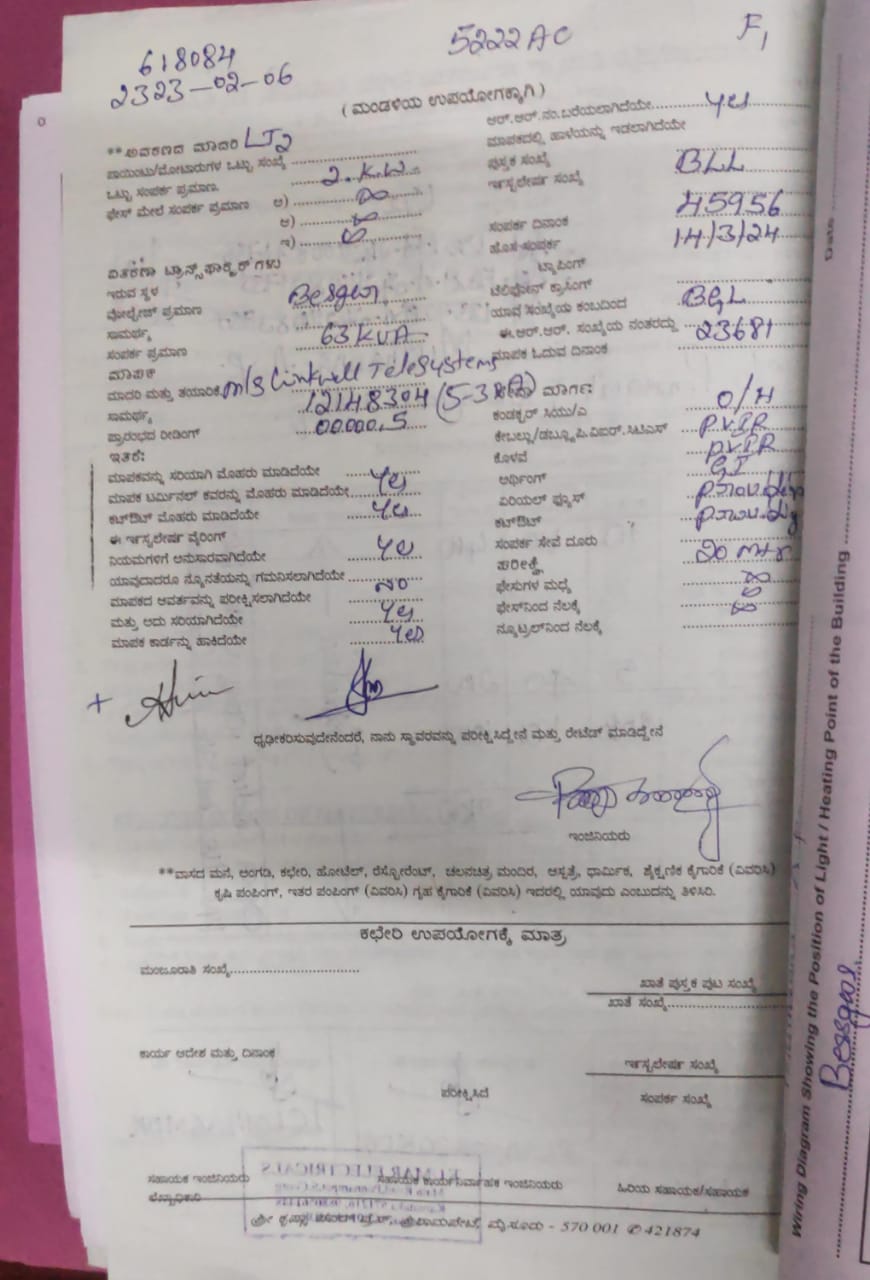 5222 AC
F1
618084
2323-02-06
( ಮಂಡಳಿಯ ಉಪಯೋಗಕ್ಕಾಗಿ )
**ಅವಕರಣದ ಮಾದರಿ LT2
ಪಾಯಿಂಟು/ಮೋಟಾರುಗಳ ಒಟ್ಟು ಸಂಖ್ಯೆ
ಒಟ್ಟು ಸಂಪರ್ಕ ಪ್ರಮಾಣ 2.K.W
ಫೇಸ್ ಮೇಲೆ ಸಂಪರ್ಕ ಪ್ರಮಾಣ ಅ)
ಆ)
ಇ)
ವಿತರಣಾ ಟ್ರಾನ್ಸ್‌ಫಾರ್ಮರ್‌ಗಳು
ಇರುವ ಸ್ಥಳ
ವೋಲ್ಟೇಜ್ ಪ್ರಮಾಣ
ಸಾಮರ್ಥ್ಯ 63 KVA
ಸಂಪರ್ಕ ಪ್ರಮಾಣ
ಮಾಪಕ
ಮಾದರಿ ಮತ್ತು ತಯಾರಿಕೆ m/s Linkwell TeleSystems
ಸಾಮರ್ಥ್ಯ 12148304
ಪ್ರಾರಂಭದ ರೀಡಿಂಗ್ 00000.5
ಇತರೆ:
ಮಾಪಕವನ್ನು ಸರಿಯಾಗಿ ಮೊಹರು ಮಾಡಿದೆಯೇ Yes
ಮಾಪಕ ಟರ್ಮಿನಲ್ ಕವರನ್ನು ಮೊಹರು ಮಾಡಿದೆಯೇ
ಕಟ್‌ಔಟ್ ಮೊಹರು ಮಾಡಿದೆಯೇ Yes
ಈ ಇನ್ಸ್ಟಲೇಷನ್ ವೈರಿಂಗ್
ನಿಯಮಗಳಿಗೆ ಅನುಸಾರವಾಗಿದೆಯೇ Yes
ಯಾವುದಾದರೂ ನ್ಯೂನತೆಯನ್ನು ಗಮನಿಸಲಾಗಿದೆಯೇ No
ಮಾಪಕದ ಆವರ್ತವನ್ನು ಪರೀಕ್ಷಿಸಲಾಗಿದೆಯೇ
ಮತ್ತು ಅದು ಸರಿಯಾಗಿದೆಯೇ Yes
ಮಾಪಕ ಕಾರ್ಡನ್ನು ಹಾಕಿದೆಯೇ Yes
ಆರ್.ಆರ್.ನಂ.ಬರೆಯಲಾಗಿದೆಯೇ Yes
ಮಾಪಕದಲ್ಲಿ ಹಾಳೆಯನ್ನು ಇಡಲಾಗಿದೆಯೇ
ಪುಸ್ತಕ ಸಂಖ್ಯೆ BLL
ಇನ್ಸ್ಟಲೇಷನ್ ಸಂಖ್ಯೆ 45956
ಸಂಪರ್ಕ ದಿನಾಂಕ 14/3/24
ಹೊಸ ಸಂಪರ್ಕ
ಟ್ಯಾಪಿಂಗ್
ಟೆಲಿಫೋನ್ ಕ್ರಾಸಿಂಗ್
ಯಾವ ಸಂಖ್ಯೆಯ ಕಂಬದಿಂದ BGL
ಈ.ಆರ್.ಆರ್. ಸಂಖ್ಯೆಯ ನಂತರದ್ದು 23681
ಮಾಪಕ ಓದುವ ದಿನಾಂಕ
ಮಾರ್ಗಣ O/H
ಕಂಡಕ್ಟರ್ ಸಿಯು/ಎ
ಕೇಬಲ್ಲು/ಡಬ್ಲ್ಯೂಪಿ.ವಿಐಆರ್.ಸಿಟಿಎಸ್
ಕೊಳವೆ
ಅರ್ಥಿಂಗ್ GI
ಏರಿಯಲ್ ಫ್ಯೂಸ್
ಕಟ್‌ಔಟ್
ಸಂಪರ್ಕ ಸೇವೆ ದೂರು 20 mtr
ಪರೀಕ್ಷೆ
ಫೇಸುಗಳ ಮಧ್ಯೆ
ಫೇಸ್‌ನಿಂದ ನೆಲಕ್ಕೆ
ನ್ಯೂಟ್ರಲ್‌ನಿಂದ ನೆಲಕ್ಕೆ
ಧೃಢೀಕರಿಸುವುದೇನೆಂದರೆ, ನಾನು ಸ್ಥಾವರವನ್ನು ಪರೀಕ್ಷಿಸಿದ್ದೇನೆ ಮತ್ತು ರೇಟೆಡ್ ಮಾಡಿದ್ದೇನೆ
ಇಂಜಿನಿಯರು
**ವಾಸದ ಮನೆ, ಅಂಗಡಿ, ಕಛೇರಿ, ಹೋಟೆಲ್, ರೆಸ್ಟೋರೆಂಟ್, ಚಲನಚಿತ್ರ ಮಂದಿರ, ಆಸ್ಪತ್ರೆ, ಧಾರ್ಮಿಕ, ಶೈಕ್ಷಣಿಕ ಕೈಗಾರಿಕೆ (ವಿವರಿಸಿ)
ಕೃಷಿ ಪಂಪಿಂಗ್, ಇತರ ಪಂಪಿಂಗ್ (ವಿವರಿಸಿ) ಗೃಹ ಕೈಗಾರಿಕೆ (ವಿವರಿಸಿ) ಇದರಲ್ಲಿ ಯಾವುದು ಎಂಬುದನ್ನು ತಿಳಿಸಿರಿ.
ಕಛೇರಿ ಉಪಯೋಗಕ್ಕೆ ಮಾತ್ರ
ಮಂಜೂರಾತಿ ಸಂಖ್ಯೆ
ಖಾತೆ ಪುಸ್ತಕ ಪುಟ ಸಂಖ್ಯೆ
ಖಾತೆ ಸಂಖ್ಯೆ
ಕಾರ್ಯ ಆದೇಶ ಮತ್ತು ದಿನಾಂಕ
ಇನ್ಸ್ಟಲೇಷನ್ ಸಂಖ್ಯೆ
ಪರೀಕ್ಷಿಸಿದೆ
ಸಂಪರ್ಕ ಸಂಖ್ಯೆ
ಸಹಾಯಕ ಇಂಜಿನಿಯರು
ಸಹಾಯಕ ಕಾರ್ಯನಿರ್ವಾಹಕ ಇಂಜಿನಿಯರು
ಹಿರಿಯ ಸಹಾಯಕ/ಸಹಾಯಕ
ಮೈಸೂರು - 570 001 ✆ 421874
Wiring Diagram Showing the Position of Light / Heating Point of the Building
Date